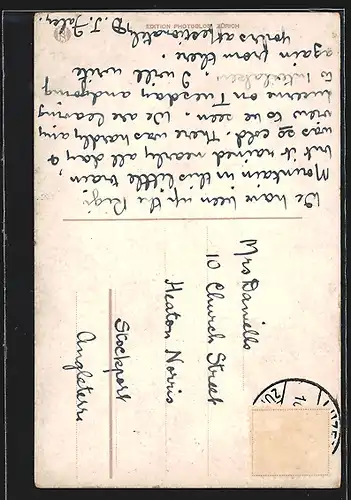 EDITION PHOTOGLOB ZÜRICH
We have been up the Rigi
Mountain in this little train,
but it rained nearly all day &
was so cold. There was hardly any
view to be seen. We are leaving
Lucerne on Tuesday and going
to Interlaken. I will write
again from there.
Yours affectionately,
Mrs Daniells
10 Church Street
Heaton Norris
Stockport
Angleterre